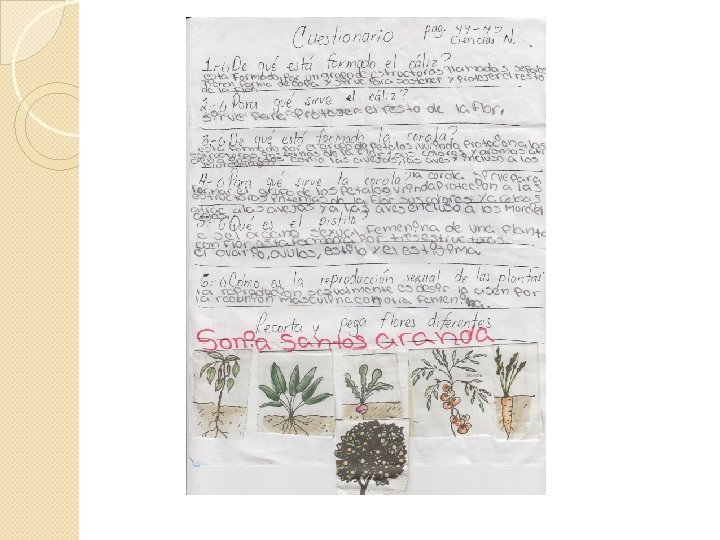 Cuestionario pag. 44-45
Ciencias N.
1.- ¿De qué está formado el cáliz?
esta Formado Por un grupo de estructoras llamadas sepalos
tienen forma de copa y sirve Para sostener y Proteger el resto
de la Flor.
2.- ¿Para qué sirve el cáliz?
sirve Para Proteger el resto de la Flor.
3.- ¿De qué está formado la corola?
esta formado Por el grupo de Petalos, Protección a los
de la Flor sus colores y aromas
como las avejas, las aves y incluso a los
4.- ¿Para qué sirve la corola? la corola sirve Para
formar el grupo de los Petalos y brinda Proteccion a las
estructoras internas de la Flor sus colores y aromas
atrae a las avejas y a las aves encluso a los
5.- ¿Qué es el pistilo?
es el organo sexual Femenina de una Planta
con Flor, esta formada Por tres estructoras
el ovario, ovulos, estilo y el estigma.
6.- ¿Cómo es la reproducción sexual de las plantas
la reproducion sexualmente es decir la asen Por
la reounion masculina con otra Femenina.
Recorta y pega flores diferentes
Sonia Santos Granda